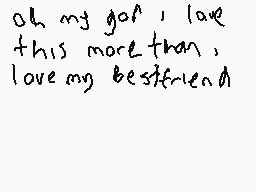 oh my god i love
this more than i
love my bestfriend